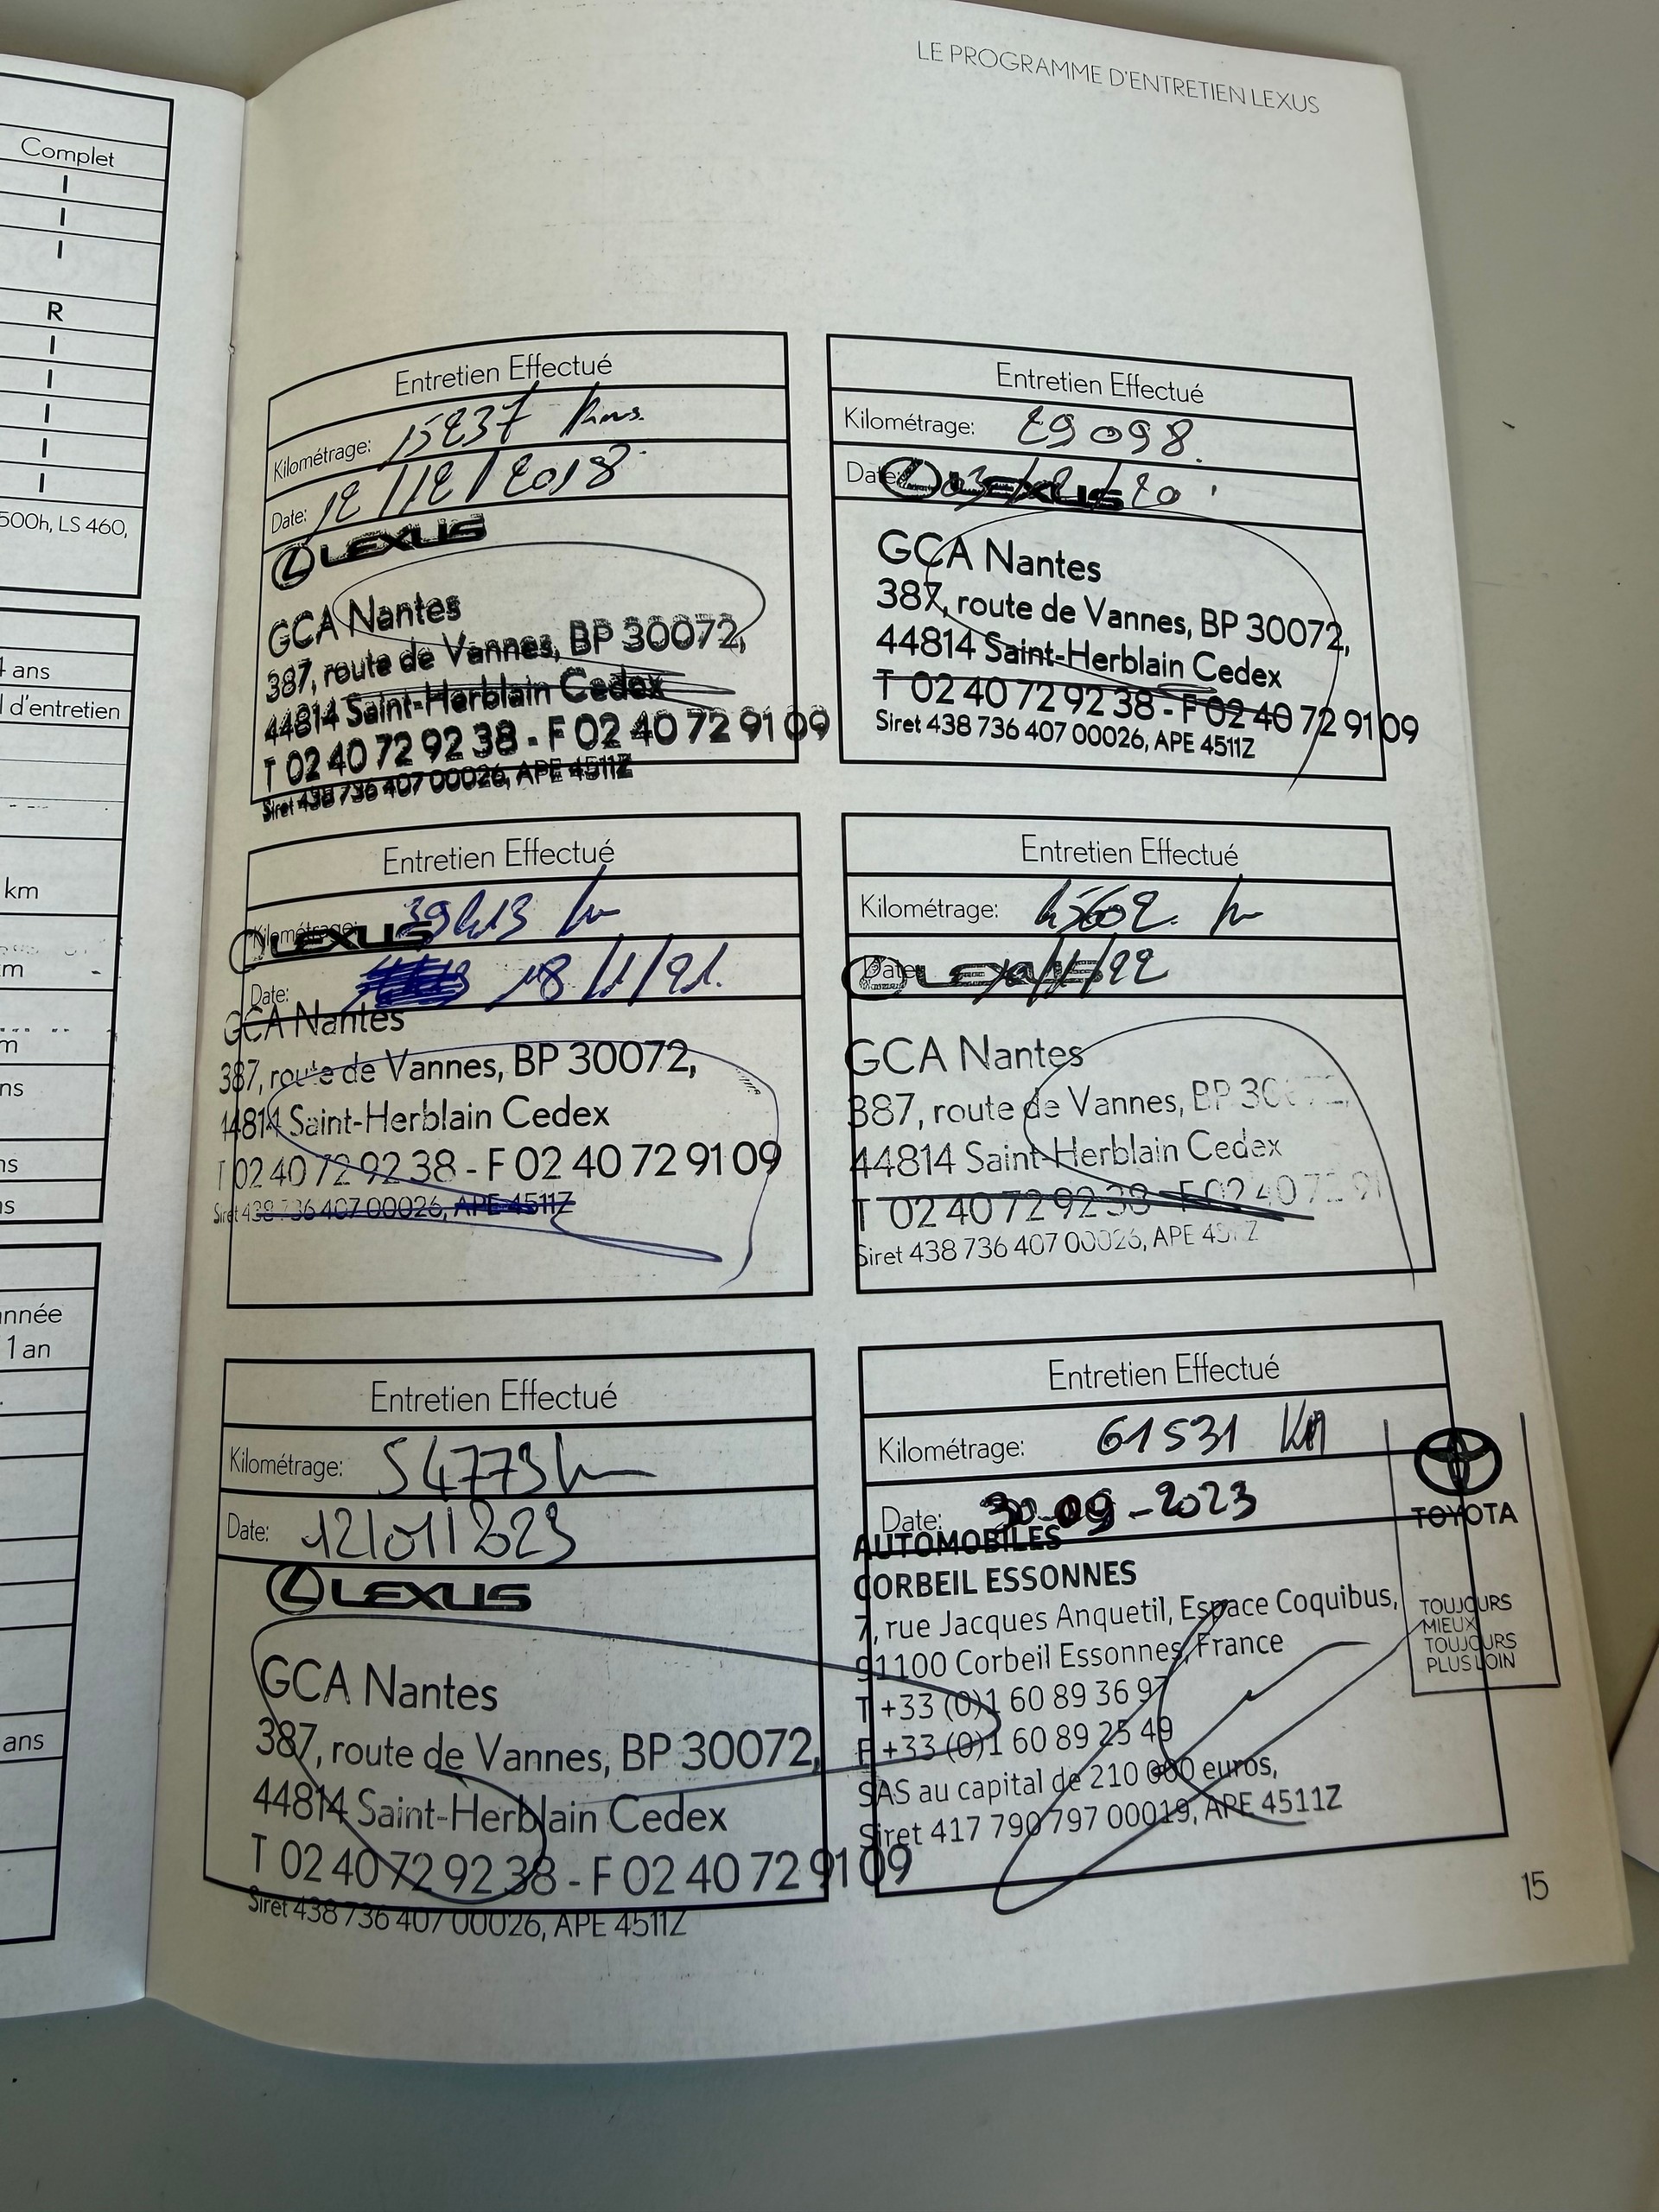 LE PROGRAMME D'ENTRETIEN LEXUS
Complet
I
I
I
R
I
I
I
I
I
500h, LS 460,
ans
d'entretien
km
m
ns
ns
s
nnée
1 an
ans
Entretien Effectué
Kilométrage: 15237 kms.
Date: 12/12/2018
LEXUS
GCA Nantes
387, route de Vannes, BP 30072,
44814 Saint-Herblain Cedex
T 02 40 72 92 38 - F 02 40 72 91 09
Siret 438 736 407 00026, APE 4511Z
Entretien Effectué
Kilométrage: 29098.
Date: /20
LEXUS
GCA Nantes
387, route de Vannes, BP 30072,
44814 Saint-Herblain Cedex
T 02 40 72 92 38 - F 02 40 72 91 09
Siret 438 736 407 00026, APE 4511Z
Entretien Effectué
Kilométrage: km
LEXUS
Date: 18/1/21.
GCA Nantes
387, route de Vannes, BP 30072,
44814 Saint-Herblain Cedex
T 02 40 72 92 38 - F 02 40 72 91 09
Siret 438 736 407 00026, APE 4511Z
Entretien Effectué
Kilométrage: 45602. km
Date: /1/22
LEXUS
GCA Nantes
387, route de Vannes, BP 30072,
44814 Saint-Herblain Cedex
T 02 40 72 92 38 - F 02 40 72 91
Siret 438 736 407 00026, APE 4511Z
Entretien Effectué
Kilométrage: 54773 km
Date: 12/01/2023
LEXUS
GCA Nantes
387, route de Vannes, BP 30072,
44814 Saint-Herblain Cedex
T 02 40 72 92 38 - F 02 40 72 91 09
Siret 438 736 407 00026, APE 4511Z
Entretien Effectué
Kilométrage: 61531 KM
Date: 30-09-2023
AUTOMOBILES
CORBEIL ESSONNES
7, rue Jacques Anquetil, Espace Coquibus,
91100 Corbeil Essonnes, France
T +33 (0)1 60 89 36 97
F +33 (0)1 60 89 25 49
SAS au capital de 210 000 euros,
Siret 417 790 797 00019, APE 4511Z
TOYOTA
TOUJOURS
MIEUX
TOUJOURS
PLUS LOIN
15